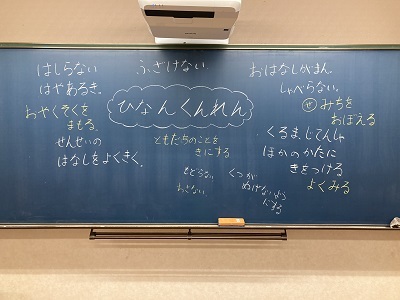 はしらない
はやあるき。
おやくそくを
まもる。
せんせいの
はなしをよくきく。
ふざけない
ひなんくんれん
ともだちのことを
きにする
もどらない
おさない
くつが
ぬげないよう
にする
おはなしがまん。
しゃべらない。
ぜ みちを
おぼえる
くるま、じてんしゃ
ほかのかたに
きをつける
よくみる